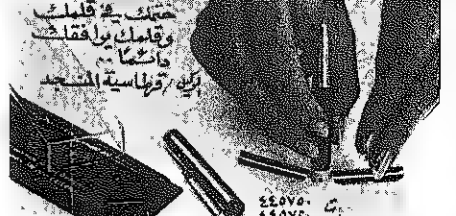 ختمك في قلمك
وقلمك يوافقك
دائمًا ..
قرطاسية المنجد
ت ٤٤٥٧٥٠